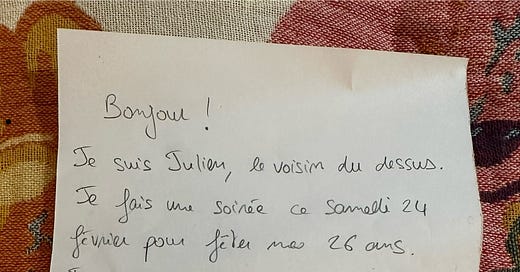 Bonjour !
Je suis Julien, le voisin du dessus.
Je fais une soirée ce samedi 24
février pour fêter mes 26 ans.